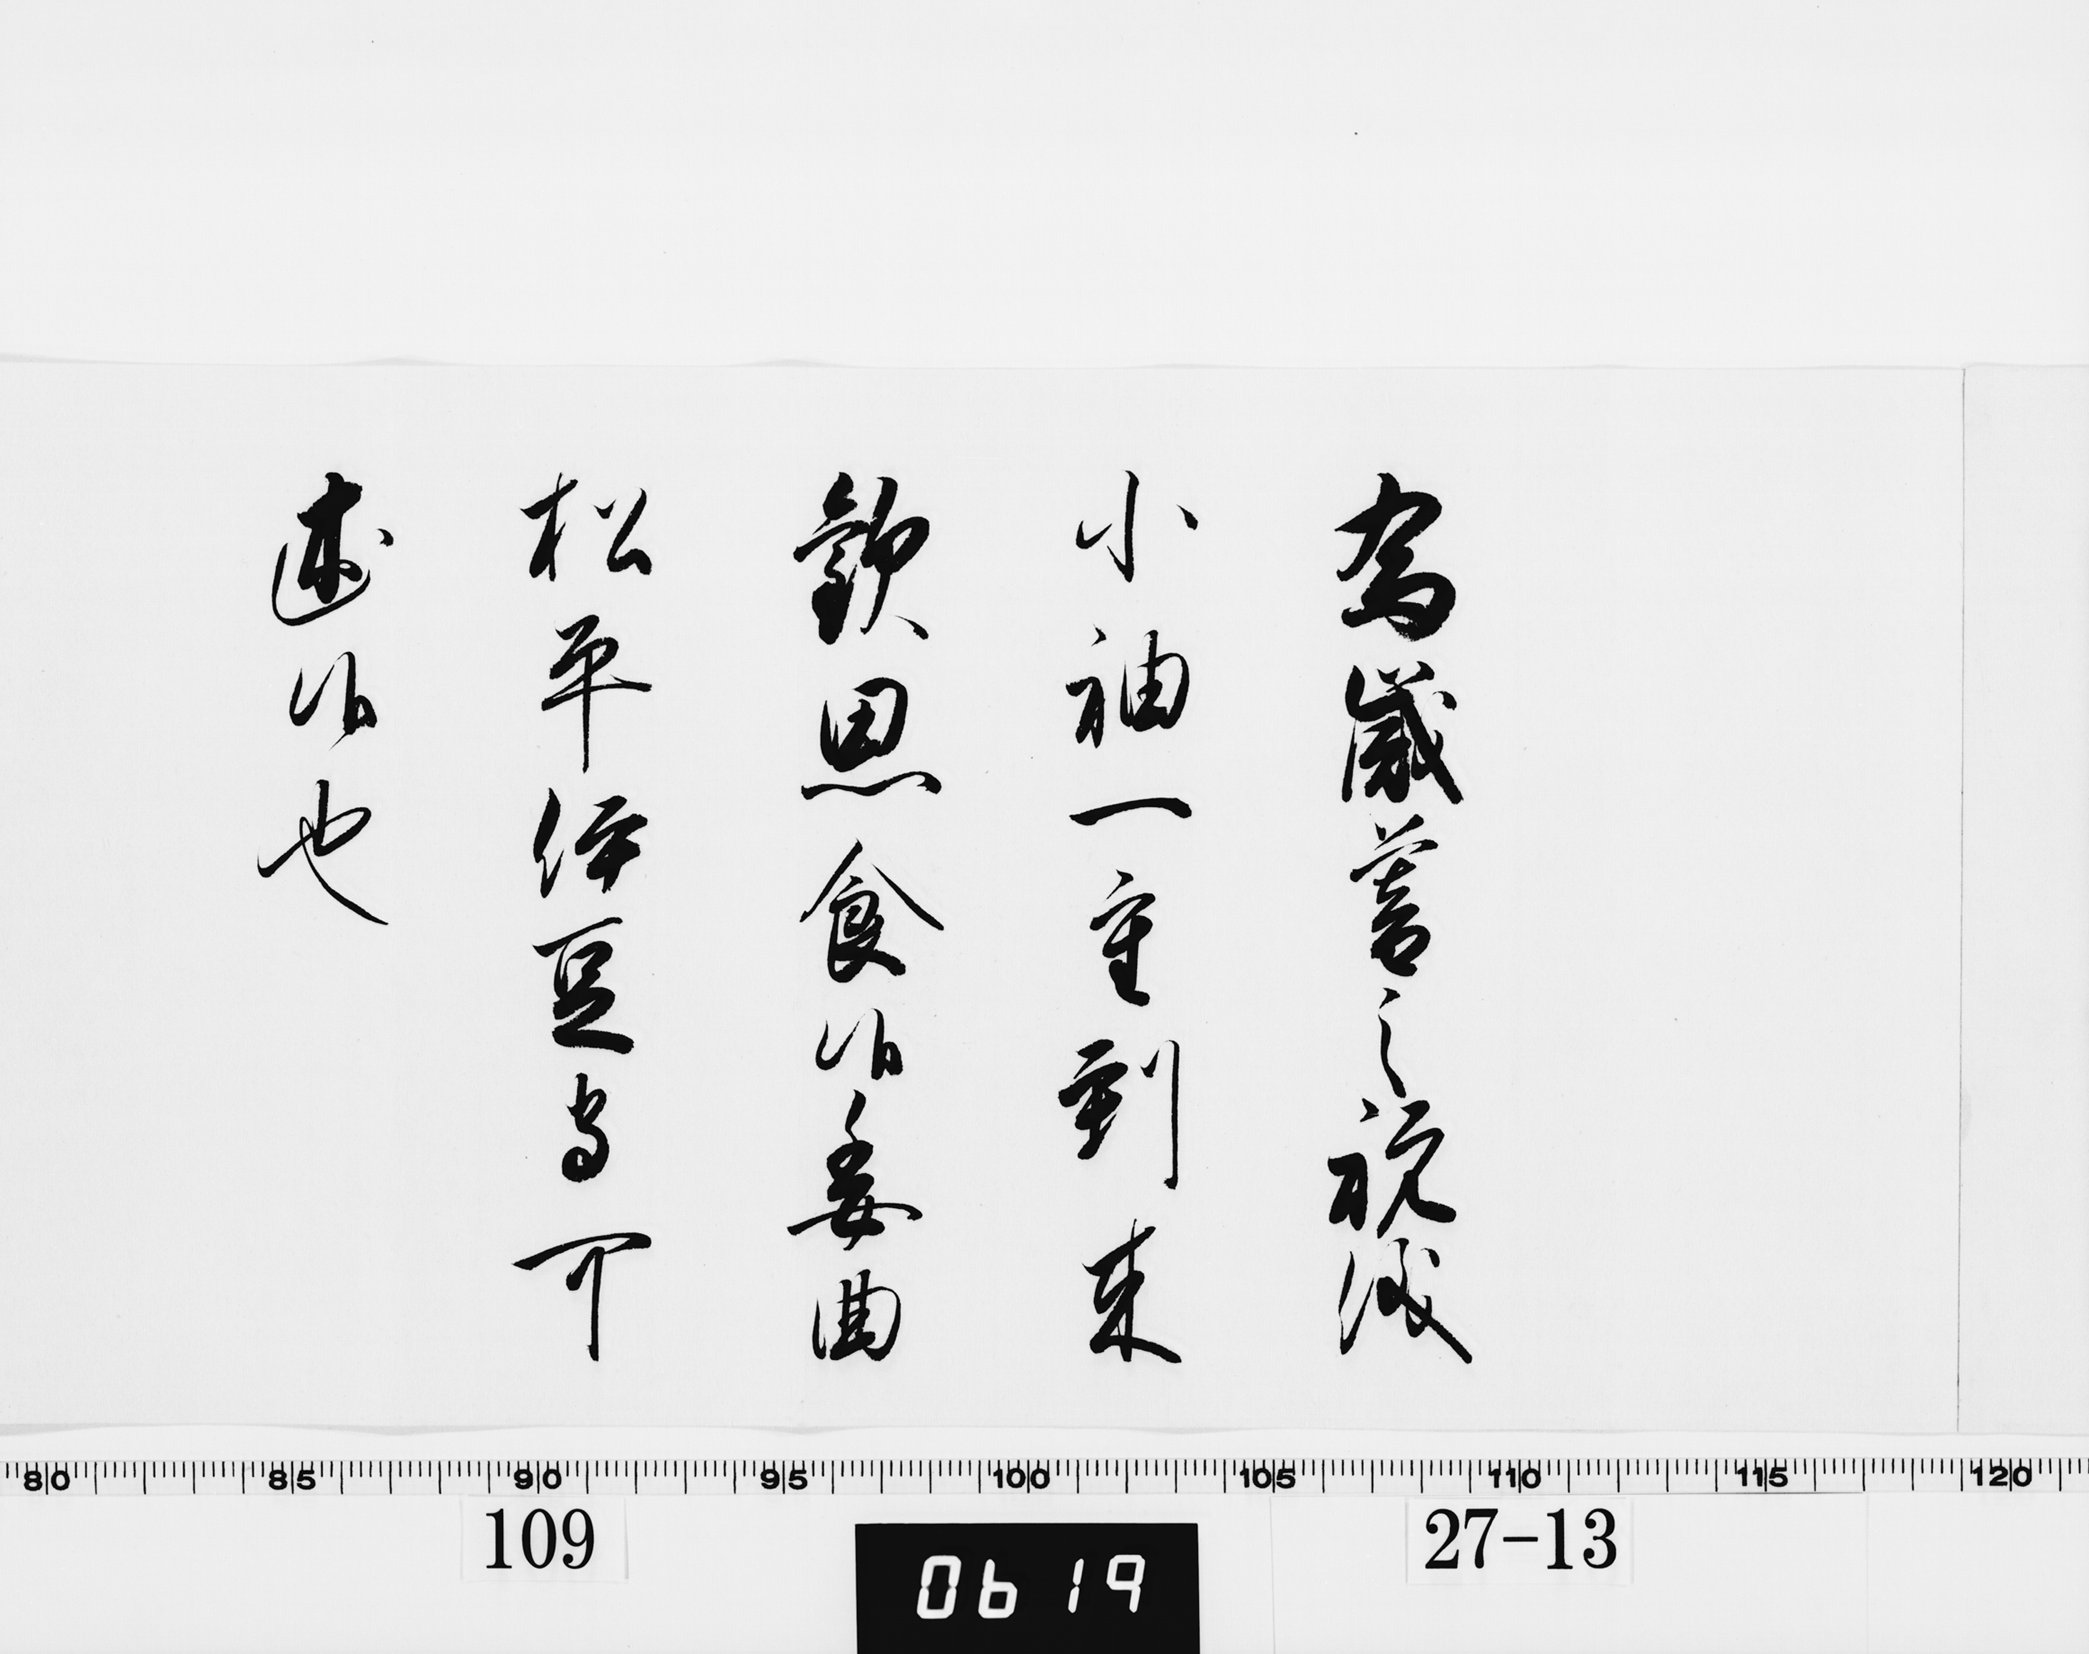 為歳暮之祝儀
小袖一重到来
歓思食候委曲
松平伊豆守可
述候也
80 85 90 95 100 105 110 115 120
109
0619
27-13